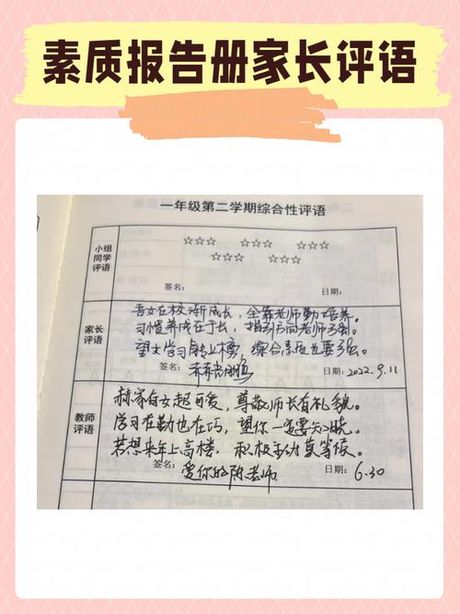 素质报告册家长评语
一年级第二学期综合性评语
小组
同学
评语
☆☆☆ ☆☆☆ ☆☆☆
☆☆☆ ☆☆☆
签名: 日期:
家长
评语
吾女在校渐成长，全靠老师勤培养。
习惯养成在于长，指引方向老师
望女学习 上榜，综合素质也要强。
签名: 日期: 2022.9.11
教师
评语
赫家有女超可爱，尊敬师长有礼貌。
学习在勤也在巧，望你一定要知晓。
若想来年上高楼，积极主动莫等候。
签名: 爱你的陈老师 日期: 6.30